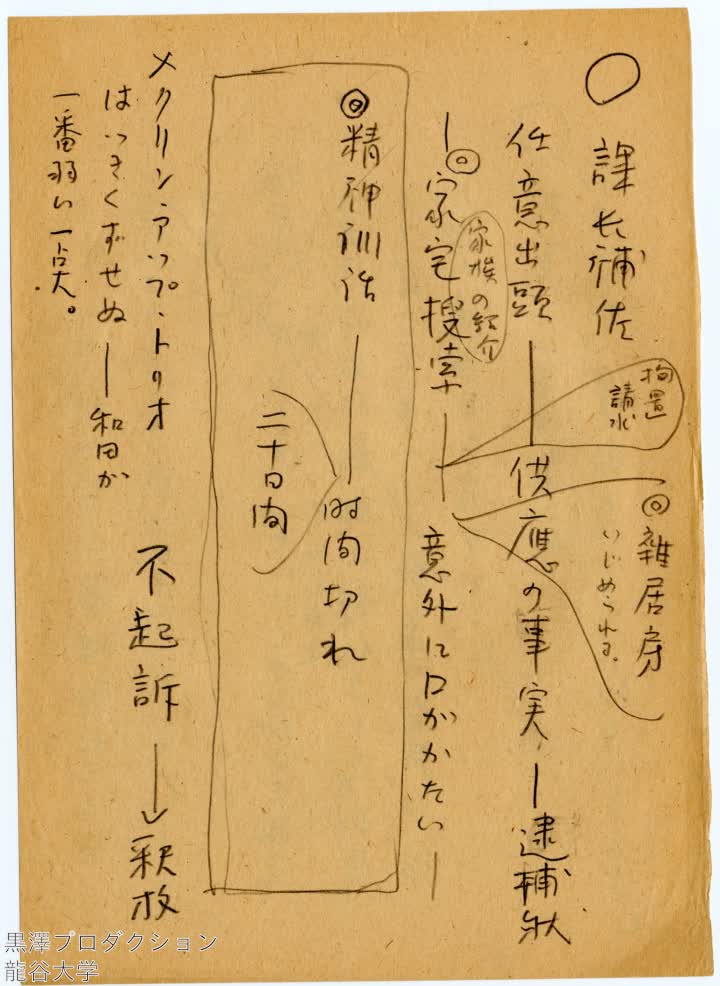 ○ 課長補佐
任意出頭 ― 供應の事実 ― 逮捕状
拘置
請求
◎ 雑居房
いじめられる。
― ◎ 家宅捜索 ― 意外に口がかたい ―
家族の紹介
◎ 精神訓話 ― 时间切れ
二十日间
メクリンアップ・トリオ
はっきくずせぬ ― 和田が
一番弱い一点。
不起訴 → 釈放
黒澤プロダクション
龍谷大学